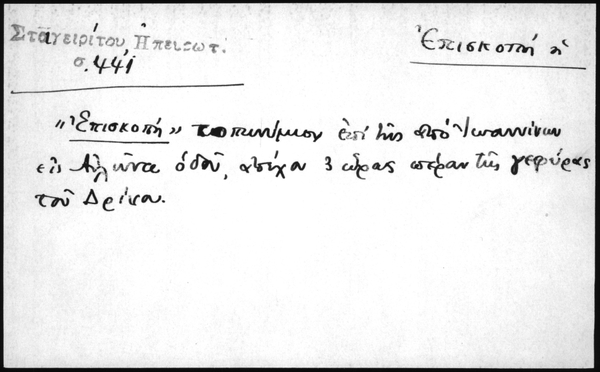 Σταγειρίτου, Ηπειρωτ.
σ. 441
Ἐπισκοπή ἡ
"Ἐπισκοπή" τοπωνύμιον ἐπὶ τῆς ἀπὸ Ἰωαννίνων
εἰς Αὐλῶνα ὁδοῦ, ἀπέχον 3 ὥρας πέραν τῆς γεφύρας
τοῦ Δρίνου.